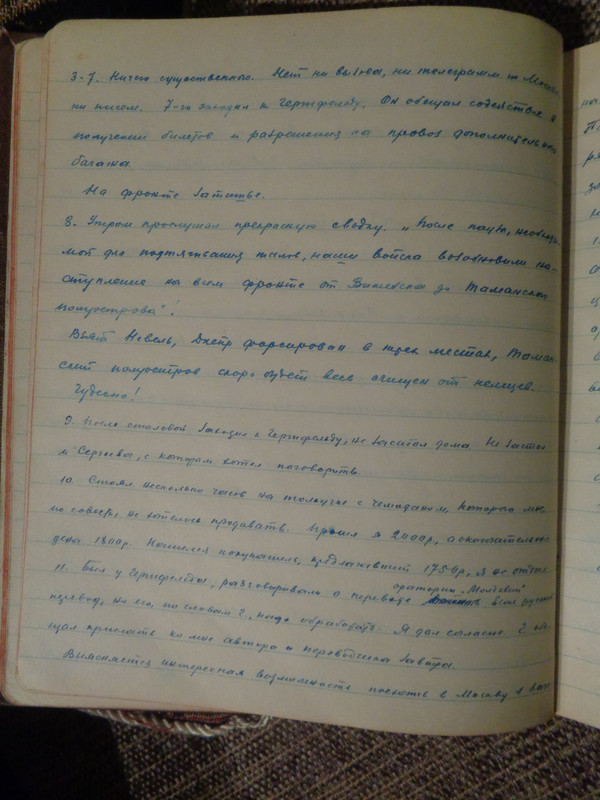 3-7. Ничего существенного. Нет ни вызова, ни телеграмм из Москвы
ни писем. 7-го заходил к Гернфельду. Он обещал содействие в
получении билетов и разрешения на провоз дополнительного
багажа.
На фронте затишье.
8. Утром прослушал прекрасную сводку. „После паузы, необходи-
мой для подтягивания тылов, наши войска возобновили на-
ступление на всем фронте от Витебска до Таманского
полуострова"!
Взят Невель, Днепр форсирован в трех местах, Таман-
ский полуостров скоро будет весь очищен от немцев.
Чудесно!
9. После столовой заходил к Гернфельду, не застал дома. Не застал
и Сергеева, с которым хотел поговорить.
10. Стоял несколько часов на толкучке с чемоданом, которого мне
не хотелось продавать. Просил я 2400р, а окончательная
цена 1800р. Нашелся покупатель, предлагавший 1750р, я не отдал
11. Был у Гернфельда, разговаривали о переводе оратории
русский
перевод, но его, по словам Г, надо обработать. Я дал согласие. Г обе-
щал прислать ко мне автора и переводчика завтра.
Выясняется интересная возможность поехать в Москву в